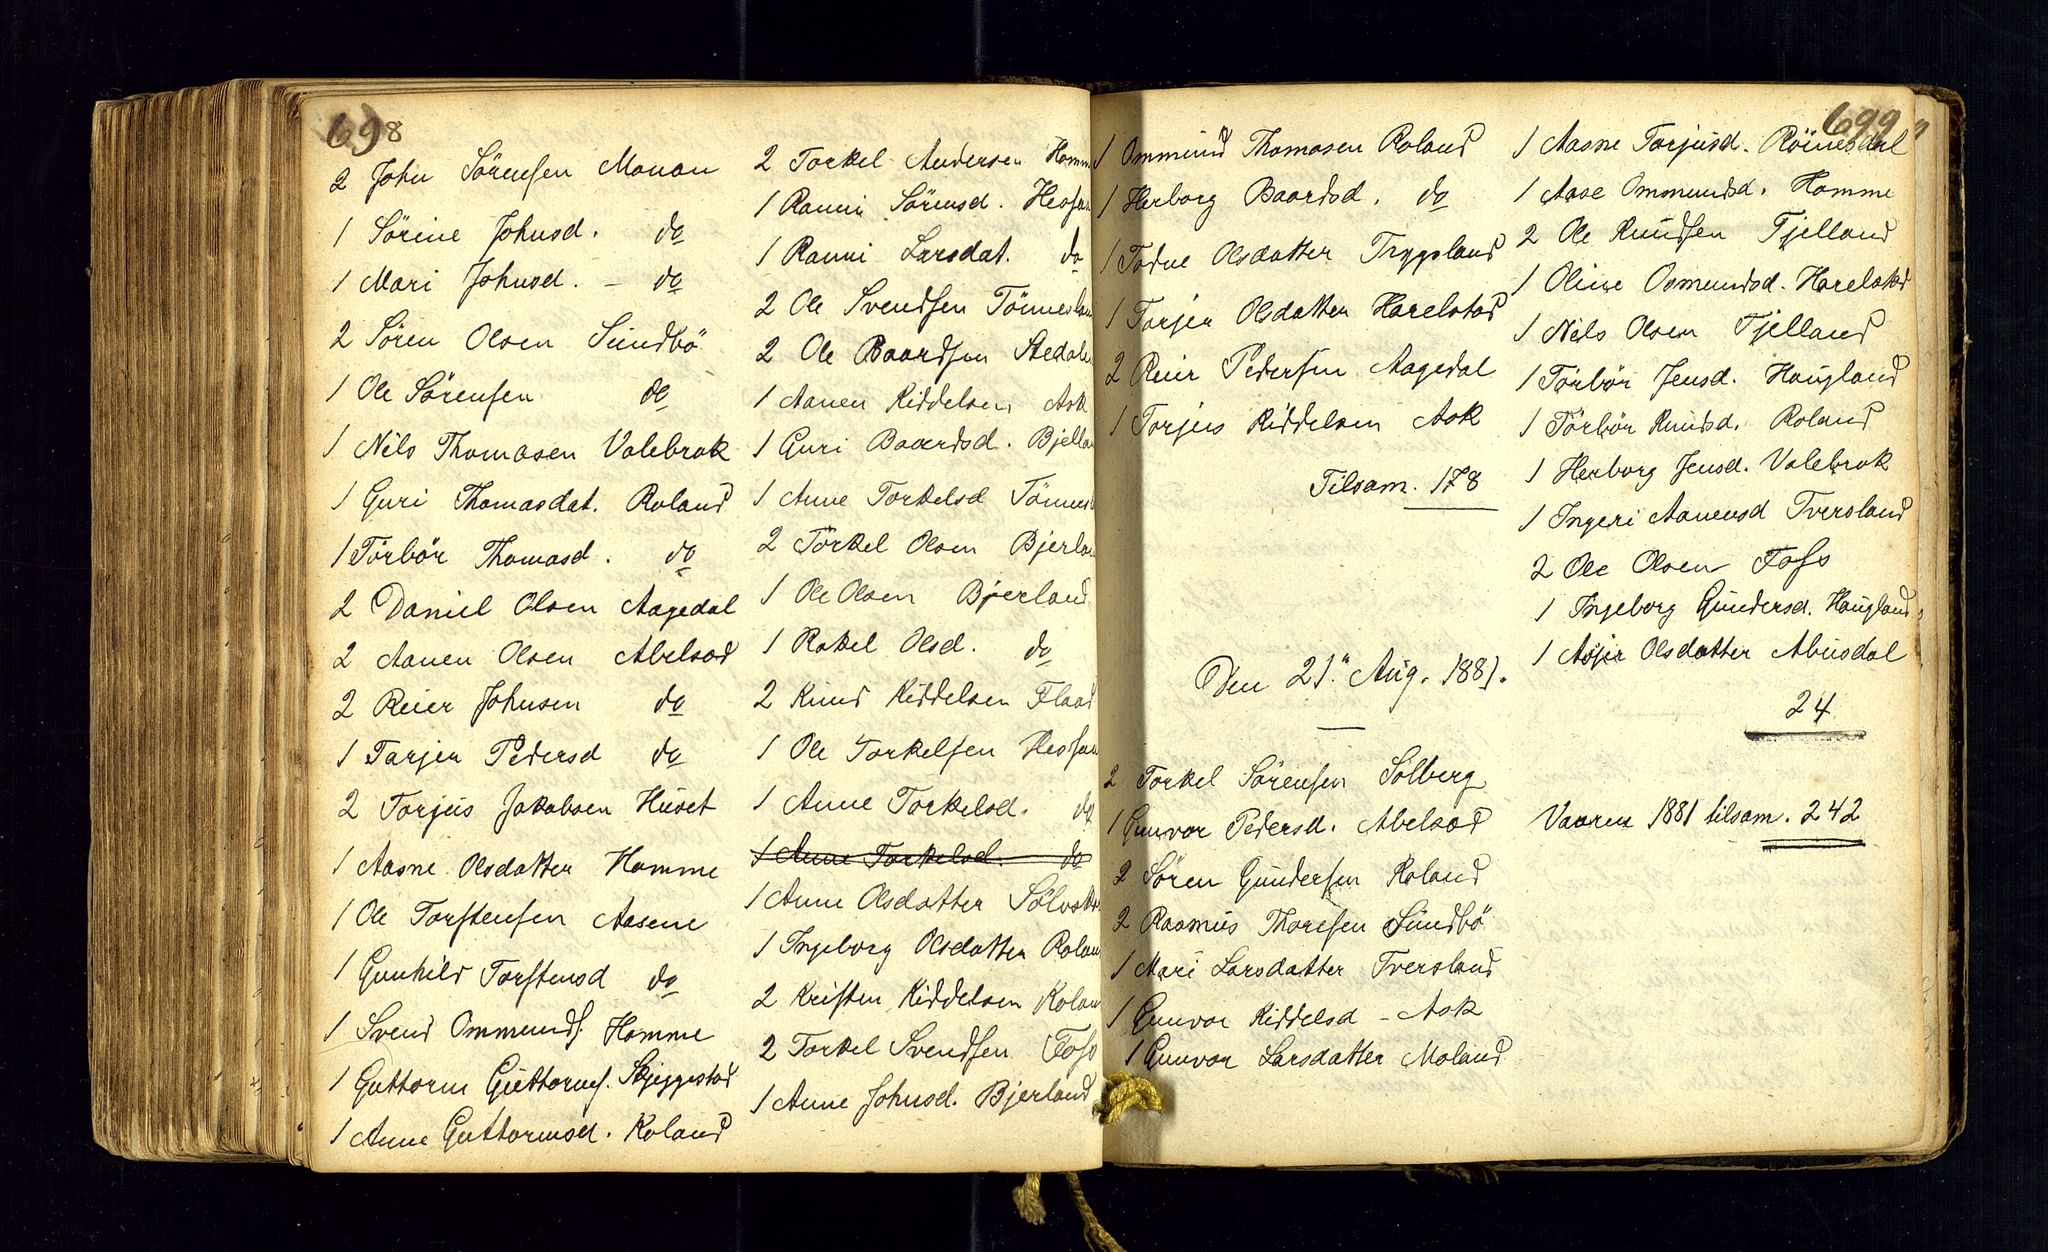 698
2 John Sörensen Monan
1 Sörine Johnsd. do
1 Mari Johnsd. - do
2 Sören Olsen Sundbö
1 Ole Sörensen do
1 Nils Thomasen Valebrok
1 Guri Thomasdat. Roland
1 Törbör Thomasd. do
2 Daniel Olsen Aagedal
2 Aanen Olsen Abelsod
2 Reier Johnsen do
1 Tarjer Pedersd do
2 Torjus Jakobsen Huset
1 Aasne Olsdatter Homme
1 Ole Torstensen Aasene
1 Gunhild Torstensd do
1 Svend Ommunds. Homme
1 Guttorm Guttorms. Skjeggestad
1 Anne Guttormsd. Roland
2 Torkel Andersen Homme
1 Ranni Sörensd.
1 Ranni Larsdat. do
2 Ole Svendsen Tönnesland
2 Ole Baardsen
1 Aanen Kiddelsen Ask
1 Guri Baardsd. Bjelland
1 Anne Torkelsd
2 Törkel Olsen Bjerland
1 Ole Olsen Bjerland
1 Rakel Olsd. do
2 Knud Kiddelsen Flaad
1 Ole Torkelsen
1 Anne Torkelsd. do
1 Anne Torkelsd. do
1 Anne Olsdatter
1 Ingeborg Olsdatter Roland
2 Kristen Kiddelsen Roland
2 Torkel Svendsen Foss
1 Anne Johnsd. Bjerland
699
1 Ommund Thomasen Roland
1 Herborg Baardsd. do
1 Todne Olsdatter Trygsland
1 Torjer Olsdatter Harelstad
2 Reier Pedersen Aagedal
1 Torjus Kiddelsen Ask
Tilsam. 178
Den 21" Aug. 1881.
2 Torkel Sörensen Solberg
1 Gunvor Pedersd. Abelsod
2 Sören Gundersen Roland
2 Rasmus Thoresen Sundbö
1 Mari Larsdatter Tversland
1 Gunvor Kiddelsd - Ask
1 Gunvor Larsdatter Moland
1 Aasne Torjusd. Röinesdal
1 Aase Ommundsd. Homme
2 Ole Knudsen Fjelland
1 Oline Osmundsd. Harelstad
1 Nils Olsen Fjelland
1 Törbör Jensd. Haugland
1 Törbör Knudsd. Roland
1 Herborg Jensd. Valebrok
1 Ingeri Aanensd Tversland
2 Ole Olsen Foss
1 Ingeborg Gundersd. Haugland
1 Olsdatter Abusdal
24
Vaaren 1881 tilsam. 242